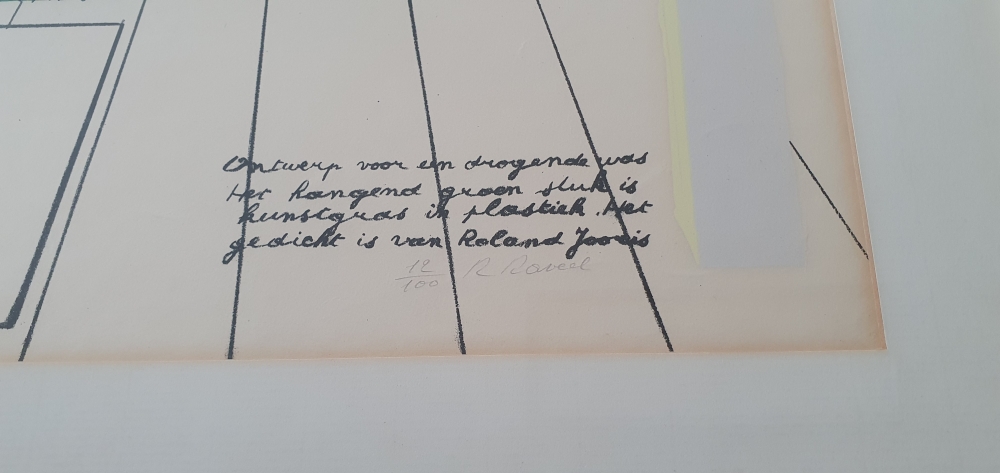 Ontwerp voor een drogende was
Het hangend groen stuk is
kunstgras in plastiek. Het
gedicht is van Roland Jooris
12/100 R Raveel